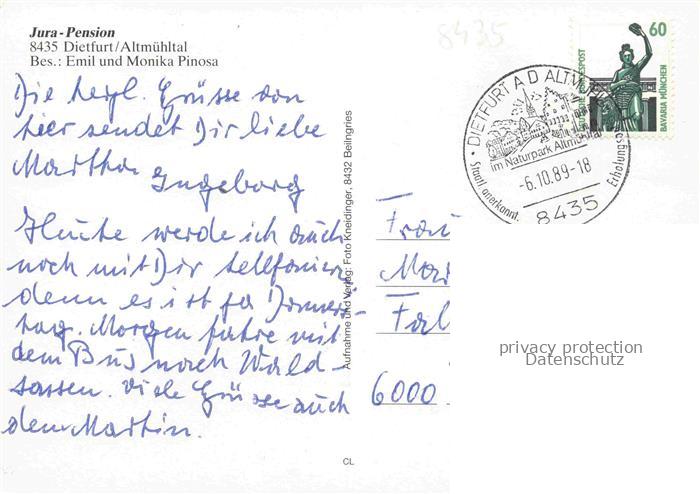 Jura-Pension
8435 Dietfurt/Altmühltal
Bes.: Emil und Monika Pinosa
Die herzl. Grüsse von
hier sendet Dir liebe
Martha
Ingeborg
Heute werde ich auch
noch mit Dir telefonier
denn es ist ja Donners-
tag. Morgen fahre mit
dem Bus nach Wald-
sassen. Viele Grüsse auch
dem Martin.
Aufnahme und Verlag: Foto Kneidinger, 8432 Beilngries
CL
8435
60
DEUTSCHE BUNDESPOST
BAVARIA MÜNCHEN
DIETFURT A D ALTM
im Naturpark Altmühltal
-6.10.89-18
Staatl. anerkannt.
Erholungso
8435
Frau
Mar
Fal
6000
privacy protection
Datenschutz